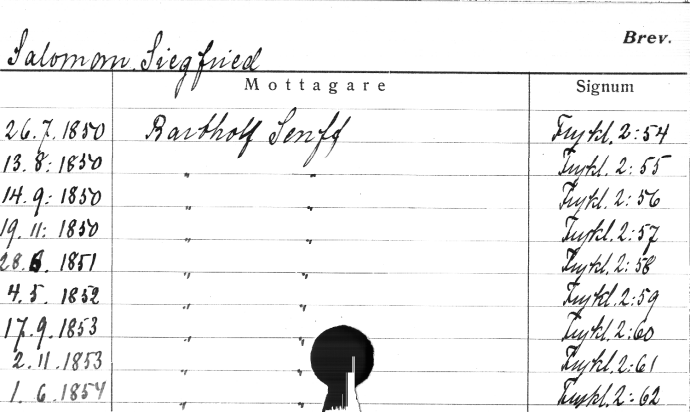 Brev.
Salomon, Siegfried
Mottagare Signum
26.7.1850 Barthholf Senff Frykl. 2:54
13.8.1850 " " Frykl. 2:55
14.9.1850 " " Frykl. 2:56
19.11.1850 " " Frykl. 2:57
28.6.1851 " " Frykl. 2:58
4.5.1852 " " Frykl. 2:59
17.9.1853 " " Frykl. 2:60
2.11.1853 " " Frykl. 2:61
1.6.1854 " " Frykl. 2:62